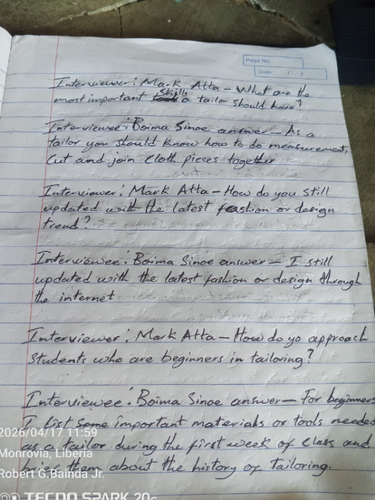 Page No.
Date / /
Interviewer: Mark Atta - What are the
most important skills a tailor should have?
Interviewee: Boima Sinoe answer - As a
tailor you should know how to do measurement,
Cut and join cloth pieces together
Interviewer: Mark Atta - How do you still
updated with the latest fashion or design
trend?
Interviewee: Boima Sinoe answer - I still
updated with the latest fashion or design through
the internet
Interviewer: Mark Atta - How do yo approach
Students who are beginners in tailoring?
Interviewee: Boima Sinoe answer - For beginners
I list some important materials or tools needed
as a tailor during the first week of class and
them about the history of tailoring.
2026/04/17 11:59
Monrovia, Liberia
Robert G.Bainda Jr.
TECNO SPARK 20c